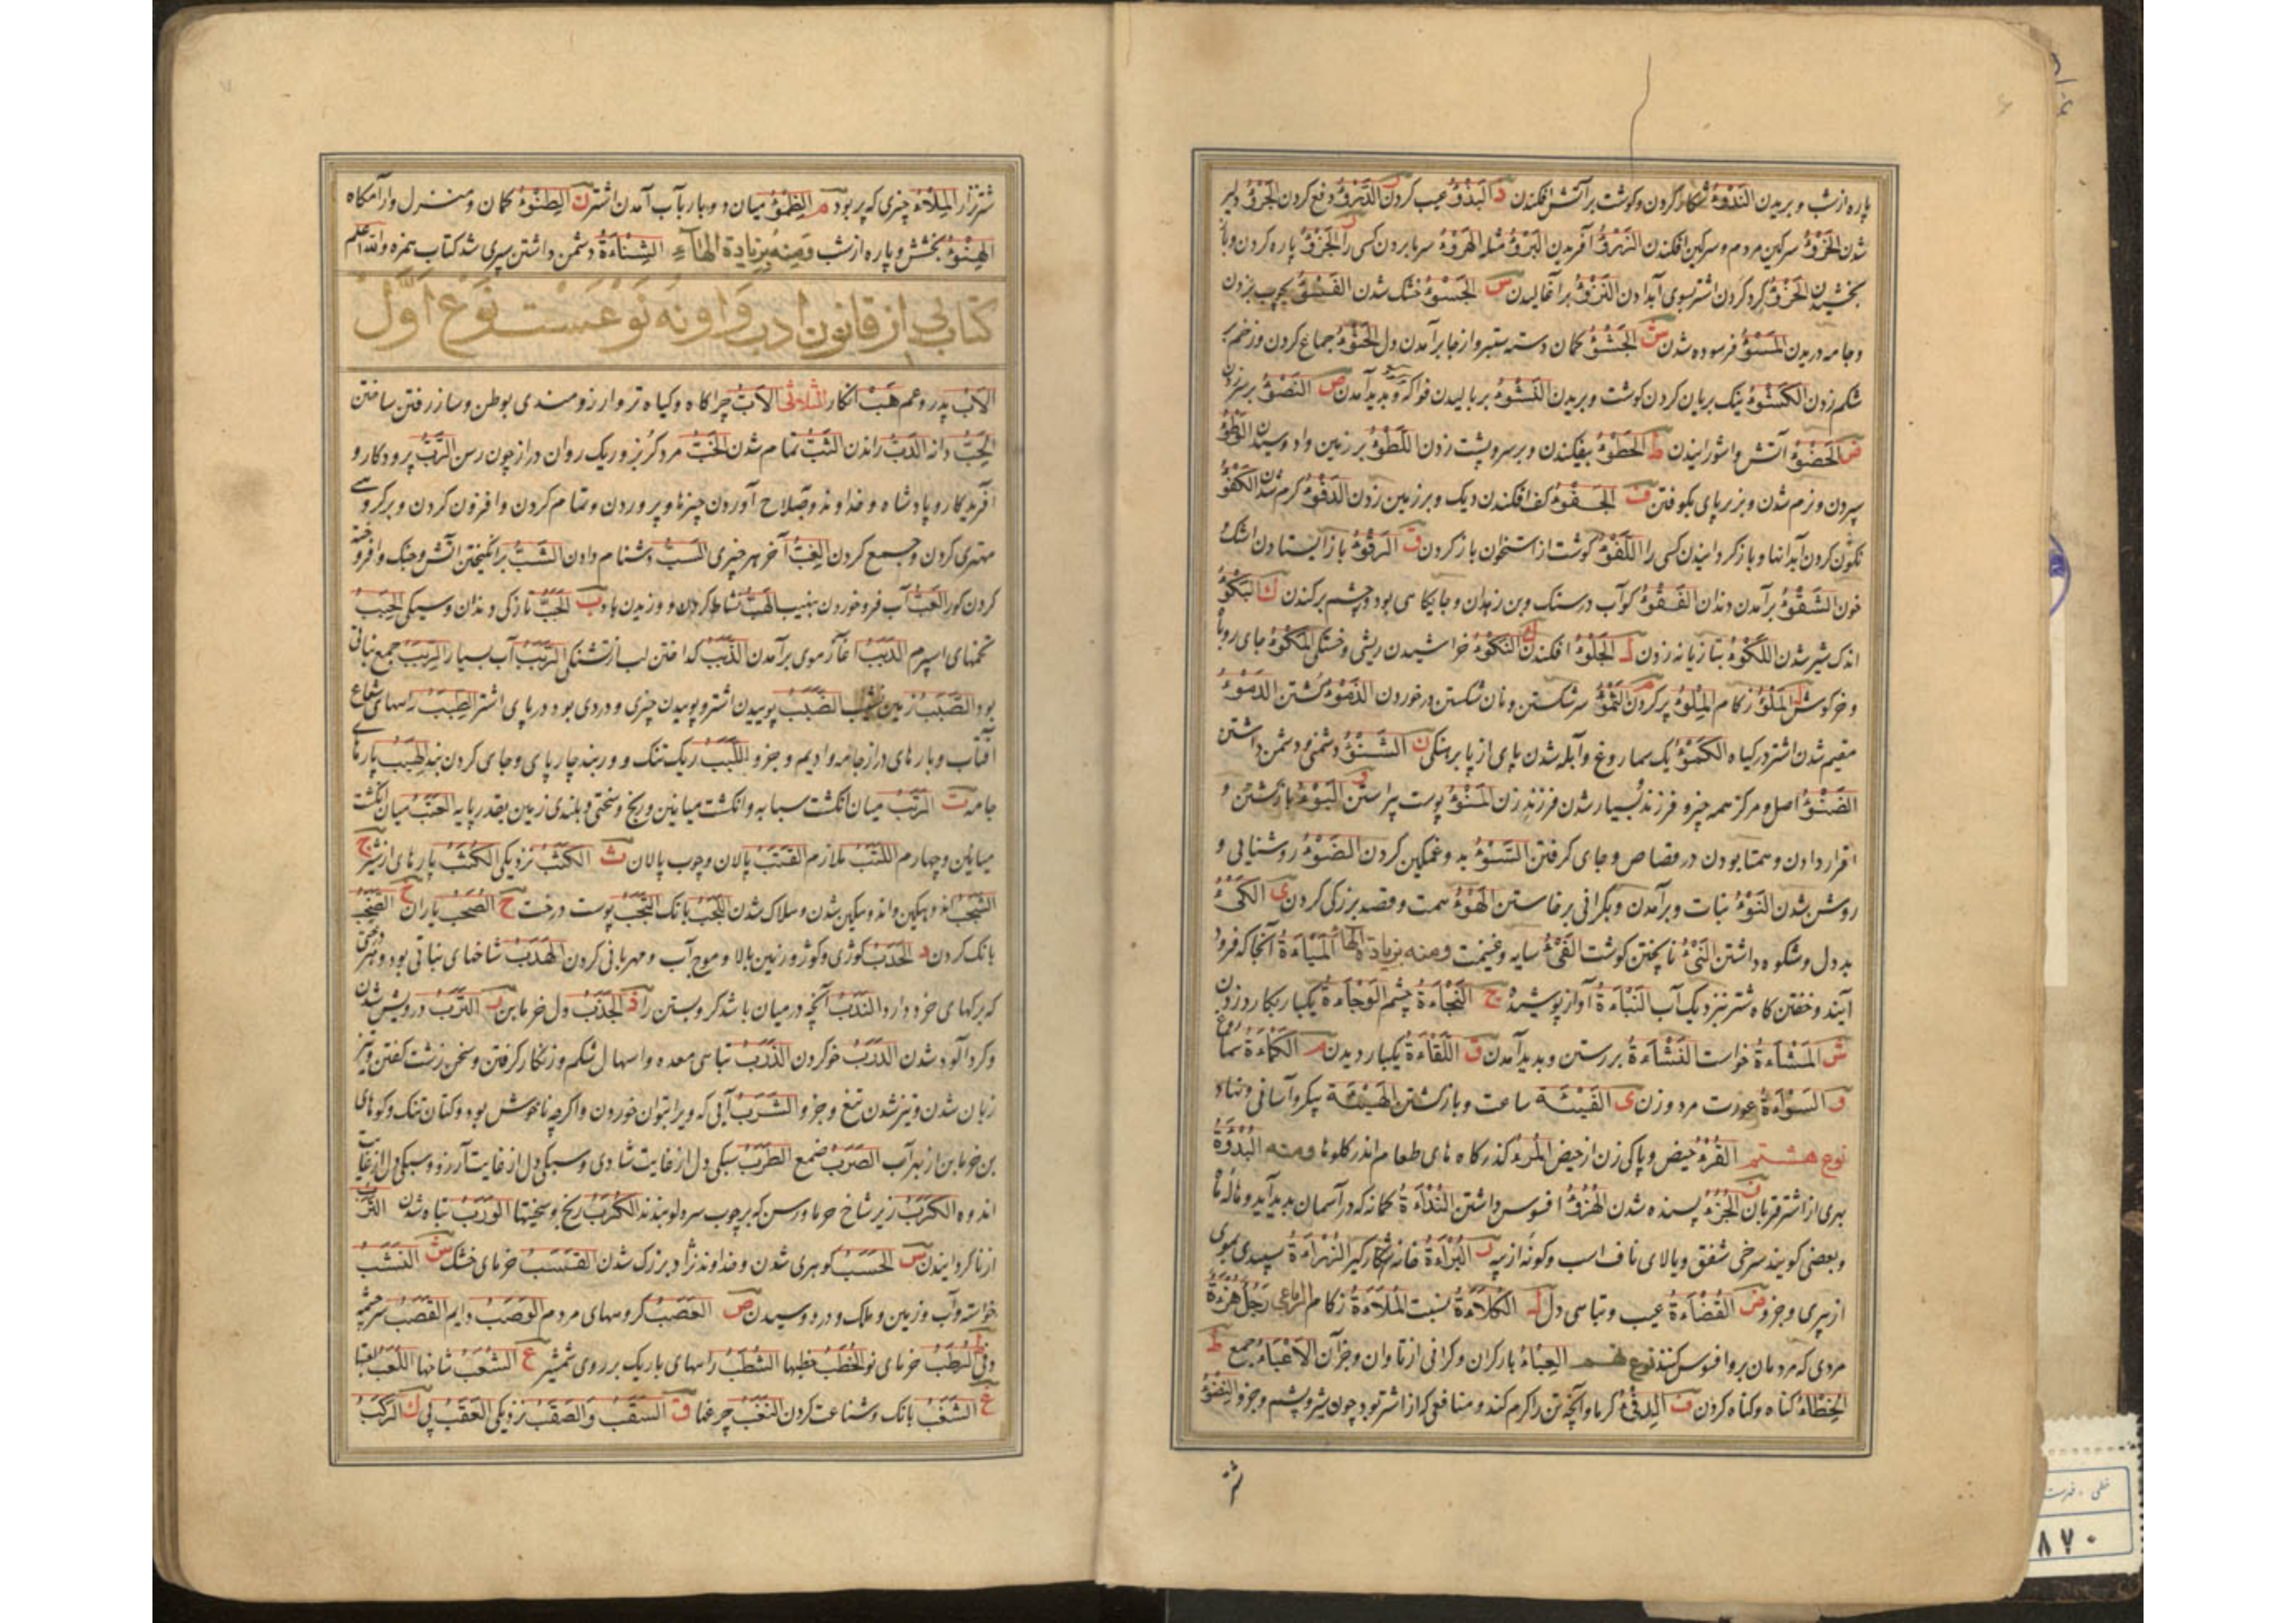 پاره از شب و بریدن النَدْءُ شکار کردن و گوشت بر آتش افکندن د البَذْءُ عیب کردن ر الدَرْءُ دفع کردن الجَرْءُ دلیر
شدن الخَرْءُ سرگین مردم و سرگین افکندن آفریدن الهَرْءُ سرما بردن کسی را الجَزْءُ پاره کردن و باز
بخشیدن کرد کردن اشتر سوی آبدادن س الجَسْوءُ خشک شدن الفَسْءُ بچوب بزدن
و جامه دریدن المَسْوءُ فرسوده شدن ش الجَشْءُ کمان و دسته ستبر و از جا برآمدن دل الحَشْوءُ جماع کردن و زخم بر
شکم زدن الکَشْوءُ نیک بریان کردن گوشت و بریدن النَشْوءُ بربالیدن فواکه و پدید آمدن ص
ض الحَضْوءُ آتش واشورانیدن ط الحَطْوءُ بیفکندن و بر سر و پشت زدن اللَطْوءُ بر زمین وادوسیدن الوَطْوءُ
سپردن و نرم شدن و بزیر پای بکوفتن ف الجَفْوءُ کف افکندن دیک و بر زمین زدن الدَفْوءُ گرم شدن الکَفْوءُ
نگون کردن آبدانها و باز گردانیدن کسی را اللَفْوءُ گوشت از استخوان باز کردن ق الرَقْوءُ باز ایستادن اشک و
خون الشَقْوءُ برآمدن دندان الفَقْوءُ گو آب در سنگ و بن زهدان و جایگاهی بود و چشم برکندن ك البَکْوءُ
اندک شیر شدن اللَکْوءُ بتازیانه زدن ل الجَلْوءُ افکندن النَکْوءُ خراشیدن ریش و خستگی المَکْوءُ جای روباه
و خرگوش المَلْوءُ زکام المِلْوءُ پر کردن م الثَمْوءُ سر شکستن و نان شکستن در خوردن الذَمْوءُ کشتن الدَمْوءُ
مقیم شدن اشتر در گیاه الکَمْوءُ یک سماروغ و آبله شدن پای از پا برهنگی ن الشَنْوءُ دشمنی و دشمن داشتن
الضَنْوءُ اصل و مرکز همه چیز و فرزند بسیار شدن فرزند زن المَنْوءُ پوست پیراستن و البَوْءُ بازگشتن و
اقرار دادن و همتا بودن در قصاص و جای گرفتن السَوْءُ بد و غمگین کردن الضَوْءُ روشنایی و
روشن شدن النَوْءُ نبات و برآمدن و بگرانی برخاستن الهَوْءُ همت و قصد بزرگی کردن ی الکَیْءُ
بد دل و شکوه داشتن النَیْءُ ناپختن گوشت الفَیْءُ سایه و غنیمت ومنه بزیادة الهاء المَبَاءَةُ آنجا که فرود
آیند و خفتن گاه شتر نزدیک آب النَبَاءَةُ آواز پوشیده ج النَجَاءَةُ چشم الوَجَاءَةُ یکبار بکارد زدن
ش المَشَاءَةُ خواست النَشَاءَةُ بررستن و پدید آمدن ق اللَقَاءَةُ یکبار دیدن م الکَمَاءَةُ سماروغ
و السَوْأَةُ عورت مرد و زن ی الفَیْئَة ساعت و بازگشتن الهَیْئَة پیکر و آسانی و نهاد
نوع هشتم القُرْءُ حیض و پاکی زن از حیض المُرْءُ گذرگاه های طعام اندر گلوها ومنه البُدْوَةُ
بهری از اشتر قربان ن الجُزْءُ پسنده شدن الهُزْءُ افسوس داشتن النُدْأَةُ کمانه که در آسمان پدید آید و هاله ماه
و بعضی گویند سرخی شفق و بالای ناف اسب و گونه از پیه ر البُرْأَةُ خانه شکارگیر الذُرْأَةُ سپیدی موی
از پیری و جزو ض القُضْأَةُ عیب و تباهی دل ل الکُلْأَةُ نسیت المُلْأَةُ زکام الرباعی رَجُلٌ هُزْءَةٌ
مردی که مردمان برو افسوس کنند نوع نهم العِبْاءُ بار گران و گرانی از تاوان و جز آن الاعْبَاءُ جمع ط
الخِطْاءُ گناه و گناه کردن ف الدِفْءُ گرما و آنچه تن را گرم کند و منافعی که از اشتر بود چون شیر و پشم و جزو النِضْوءُ
شتر
شتر نزار المِلْاءُ چیزی که پر بود م الظِمْوءُ میان دو بار بآب آمدن اشتر ن الطِنْوءُ گمان و منزل و آرامگاه
الهِنْوءُ بخشش و پاره از شب ومنه بزیادة الهاء الشِنْاءَةُ دشمن داشتن سپری شد کتاب همزه والله اعلم
کتاب بی از قانون ادب و او نه نوعست نوع اول
الاَبْ پدر و عم هَبْ انگار الثلاثی الاَبُّ چراگاه و گیاه تر و آرزومندی بوطن و ساز رفتن ساختن
الحَبُّ دانه الذَبُّ راندن الثَبُّ تمام شدن الخَبُّ مرد گربز و ریگ روان دراز چون رسن الرَبُّ پروردگار و
آفریدگار و پادشاه و خداوند و بصلاح آوردن چیزها و پروردن و تمام کردن و افزون کردن و بر گروهی
مهتری کردن و جمع کردن الغِبُّ آخر هر چیزی السَبُّ دشنام دادن الشَبُّ برانگیختن آتش و جنگ و افروخته
کردن کور العَبُّ آب فرو خوردن بنهیب الهَبُّ نشاط کردن و وزیدن باد ب الحَبَبُ تازگی دندان و سپیدی الحِبَبُ
تخمهای اسپرم الدَبَبُ آغاز موی برآمدن الذَبَبُ گداختن لب از تشنگی الرَبَبُ آب بسیار الرِبَبُ جمع نباتی
بود الصَبَبُ زمین نشیب الضَبَبُ پوسیدن اشتر و پوسیدن چیزی و دردی بود در پای اشتر الطِبَبُ رسهای شعاع
آفتاب و پارهای دراز جامه و ادیم و جزو اللَبَبُ ریگ تنک و وربند چارپای و جای گردن بند الهِبَبُ پارهای
جامه ت الرَتَبُ میان انگشت سبابه و انگشت میانین و رنج و سختی و بلندی زمین بقدر پایه العَتَبُ میان انگشت
میانین و چهارم اللَتَبُ ملازم القَتَبُ پالان و چوب پالان ث الکَثَبُ نزدیکی الکُثَبُ پارهای از شیر ج
الشَجَبُ اندوهگین و اندوهگین شدن و هلاک شدن اللَجَبُ بانگ النَجَبُ پوست درخت ح الصُحَبُ یاران خ الصَخَبُ
بانگ کردن د الحَدَبُ کوژی و کوژ و زمین بالا و موج آب و مهربانی کردن الهَدَبُ شاخهای نباتی بود و درختی
که برگهای خرد دارد النَدَبُ آنچه در میان باشد گرو بستن را ذ الجَذَبُ دل خرمابن ر التَرَبُ درویش شدن
و گرد آلود شدن الدَرَبُ خو کردن الذَرَبُ تباهی معده و اسهال شکم و زنگار گرفتن و سخن زشت گفتن و تیز
زبان شدن و تیز شدن تیغ و جزو الشَرَبُ آبی که ویرا بتوان خوردن و اگرچه ناخوش بود و کتان تنک و گوهای
بن خرمابن از بهر آب الصَرَبُ ضمغ الطَرَبُ سبکی دل از غایت شادی و سبکی دل از غایت آرزو و سبکی دل از غایت
اندوه الکَرَبُ زیر شاخ خرما و رسن که بر چوب سر دلو بندند الکُرَبُ رنج و سختیها الوَرَبُ تباه شدن
س الحَسَبُ گوهری شدن و خداوند نژاد بزرگ شدن القَسَبُ خرمای خشک ش النَشَبُ
خواسته و آب و زمین و ملک و در دوسیدن ص العَصَبُ گروههای مردم الوَصَبُ دایم القَصَبُ سرچشمه
ط الرُطَبُ خرمای نو الخُطَبُ خطبها الشُطَبُ راههای باریک بر روی شمشیر ع الشُعَبُ شاخها اللُعَبُ لعبتها
غ الشَغَبُ بانگ و شناعت کردن النُغَبُ جرعها ق السَقَبُ والصَقَبُ نزدیکی العَقَبُ پی ك الرَکَبُ
خطی - فهرست
۸۷۰